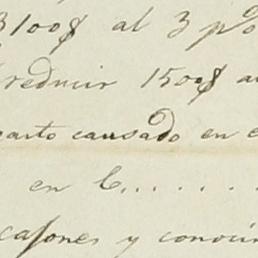 3100$ al 3 p%
reducir 1500$ a
parto causado en e
en C......
casones y conoci